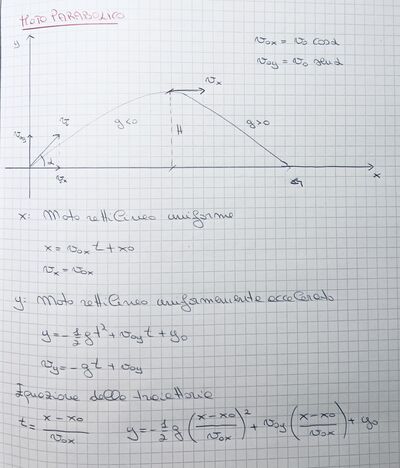 MOTO PARABOLICO
y
v₀ₓ = v₀ cosα
v₀y = v₀ senα
vₓ
v₀y
v
g<0
H
g>0
α
vₓ
x
x: Moto rettilineo uniforme
x = v₀ₓ t + x₀
vₓ = v₀ₓ
y: Moto rettilineo uniformemente accelerato
y = -1/2 g t² + v₀y t + y₀
vy = -gt + v₀y
Equazione della traiettoria
t = (x - x₀)/v₀ₓ y = -1/2 g ((x - x₀)/v₀ₓ)² + v₀y ((x - x₀)/v₀ₓ) + y₀